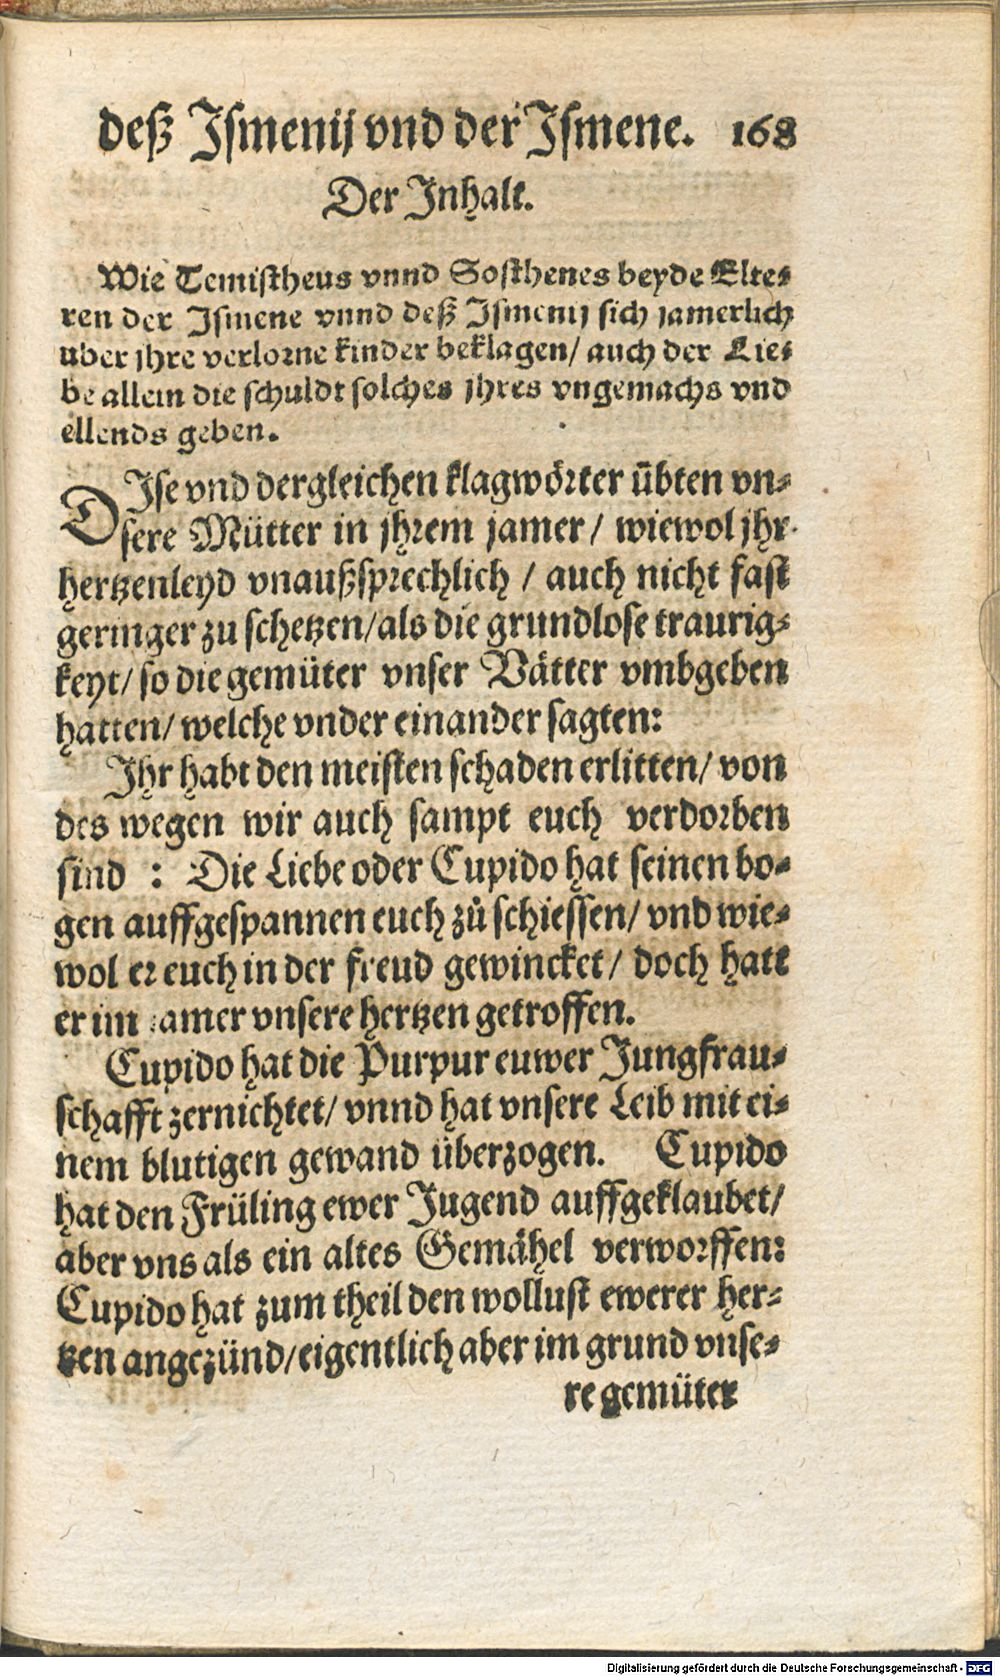 deß Ismenij vnd der Ismene. 168
Der Inhalt.
Wie Temistheus vnnd Sosthenes beyde Elte-
ren der Ismene vnnd deß Ismenij sich jamerlich
uber jhre verlorne kinder beklagen/ auch der Lie-
be allein die schuldt solches jhres vngemachs vnd
ellends geben.
DIse vnd dergleichen klagwörter übten vn-
sere Mütter in jhrem jamer/ wiewol jhr
hertzenleyd vnaußsprechlich / auch nicht fast
geringer zu schetzen/als die grundlose traurig-
keyt/ so die gemüter vnser Vätter vmbgeben
hatten/ welche vnder einander sagten:
Ihr habt den meisten schaden erlitten/ von
des wegen wir auch sampt euch verdorben
sind : Die Liebe oder Cupido hat seinen bo-
gen auffgespannen euch zů schiessen/ vnd wie-
wol er euch in der freud gewincket/ doch hatt
er im jamer vnsere hertzen getroffen.
Cupido hat die Purpur euwer Jungfrau-
schafft zernichtet/ vnnd hat vnsere Leib mit ei-
nem blutigen gewand überzogen. Cupido
hat den Früling ewer Jugend auffgeklaubet/
aber vns als ein altes Gemähel verworffen:
Cupido hat zum theil den wollust ewerer her-
tzen angezünd/eigentlich aber im grund vnse-
re gemüter
Digitalisierung gefördert durch die Deutsche Forschungsgemeinschaft - DFG